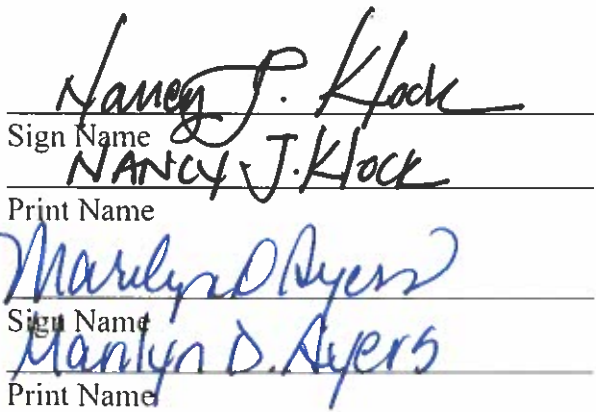 Nancy J. Klock
Sign Name
NANCY J. Klock
Print Name
Marilyn D Ayers
Sign Name
Marilyn D. Ayers
Print Name